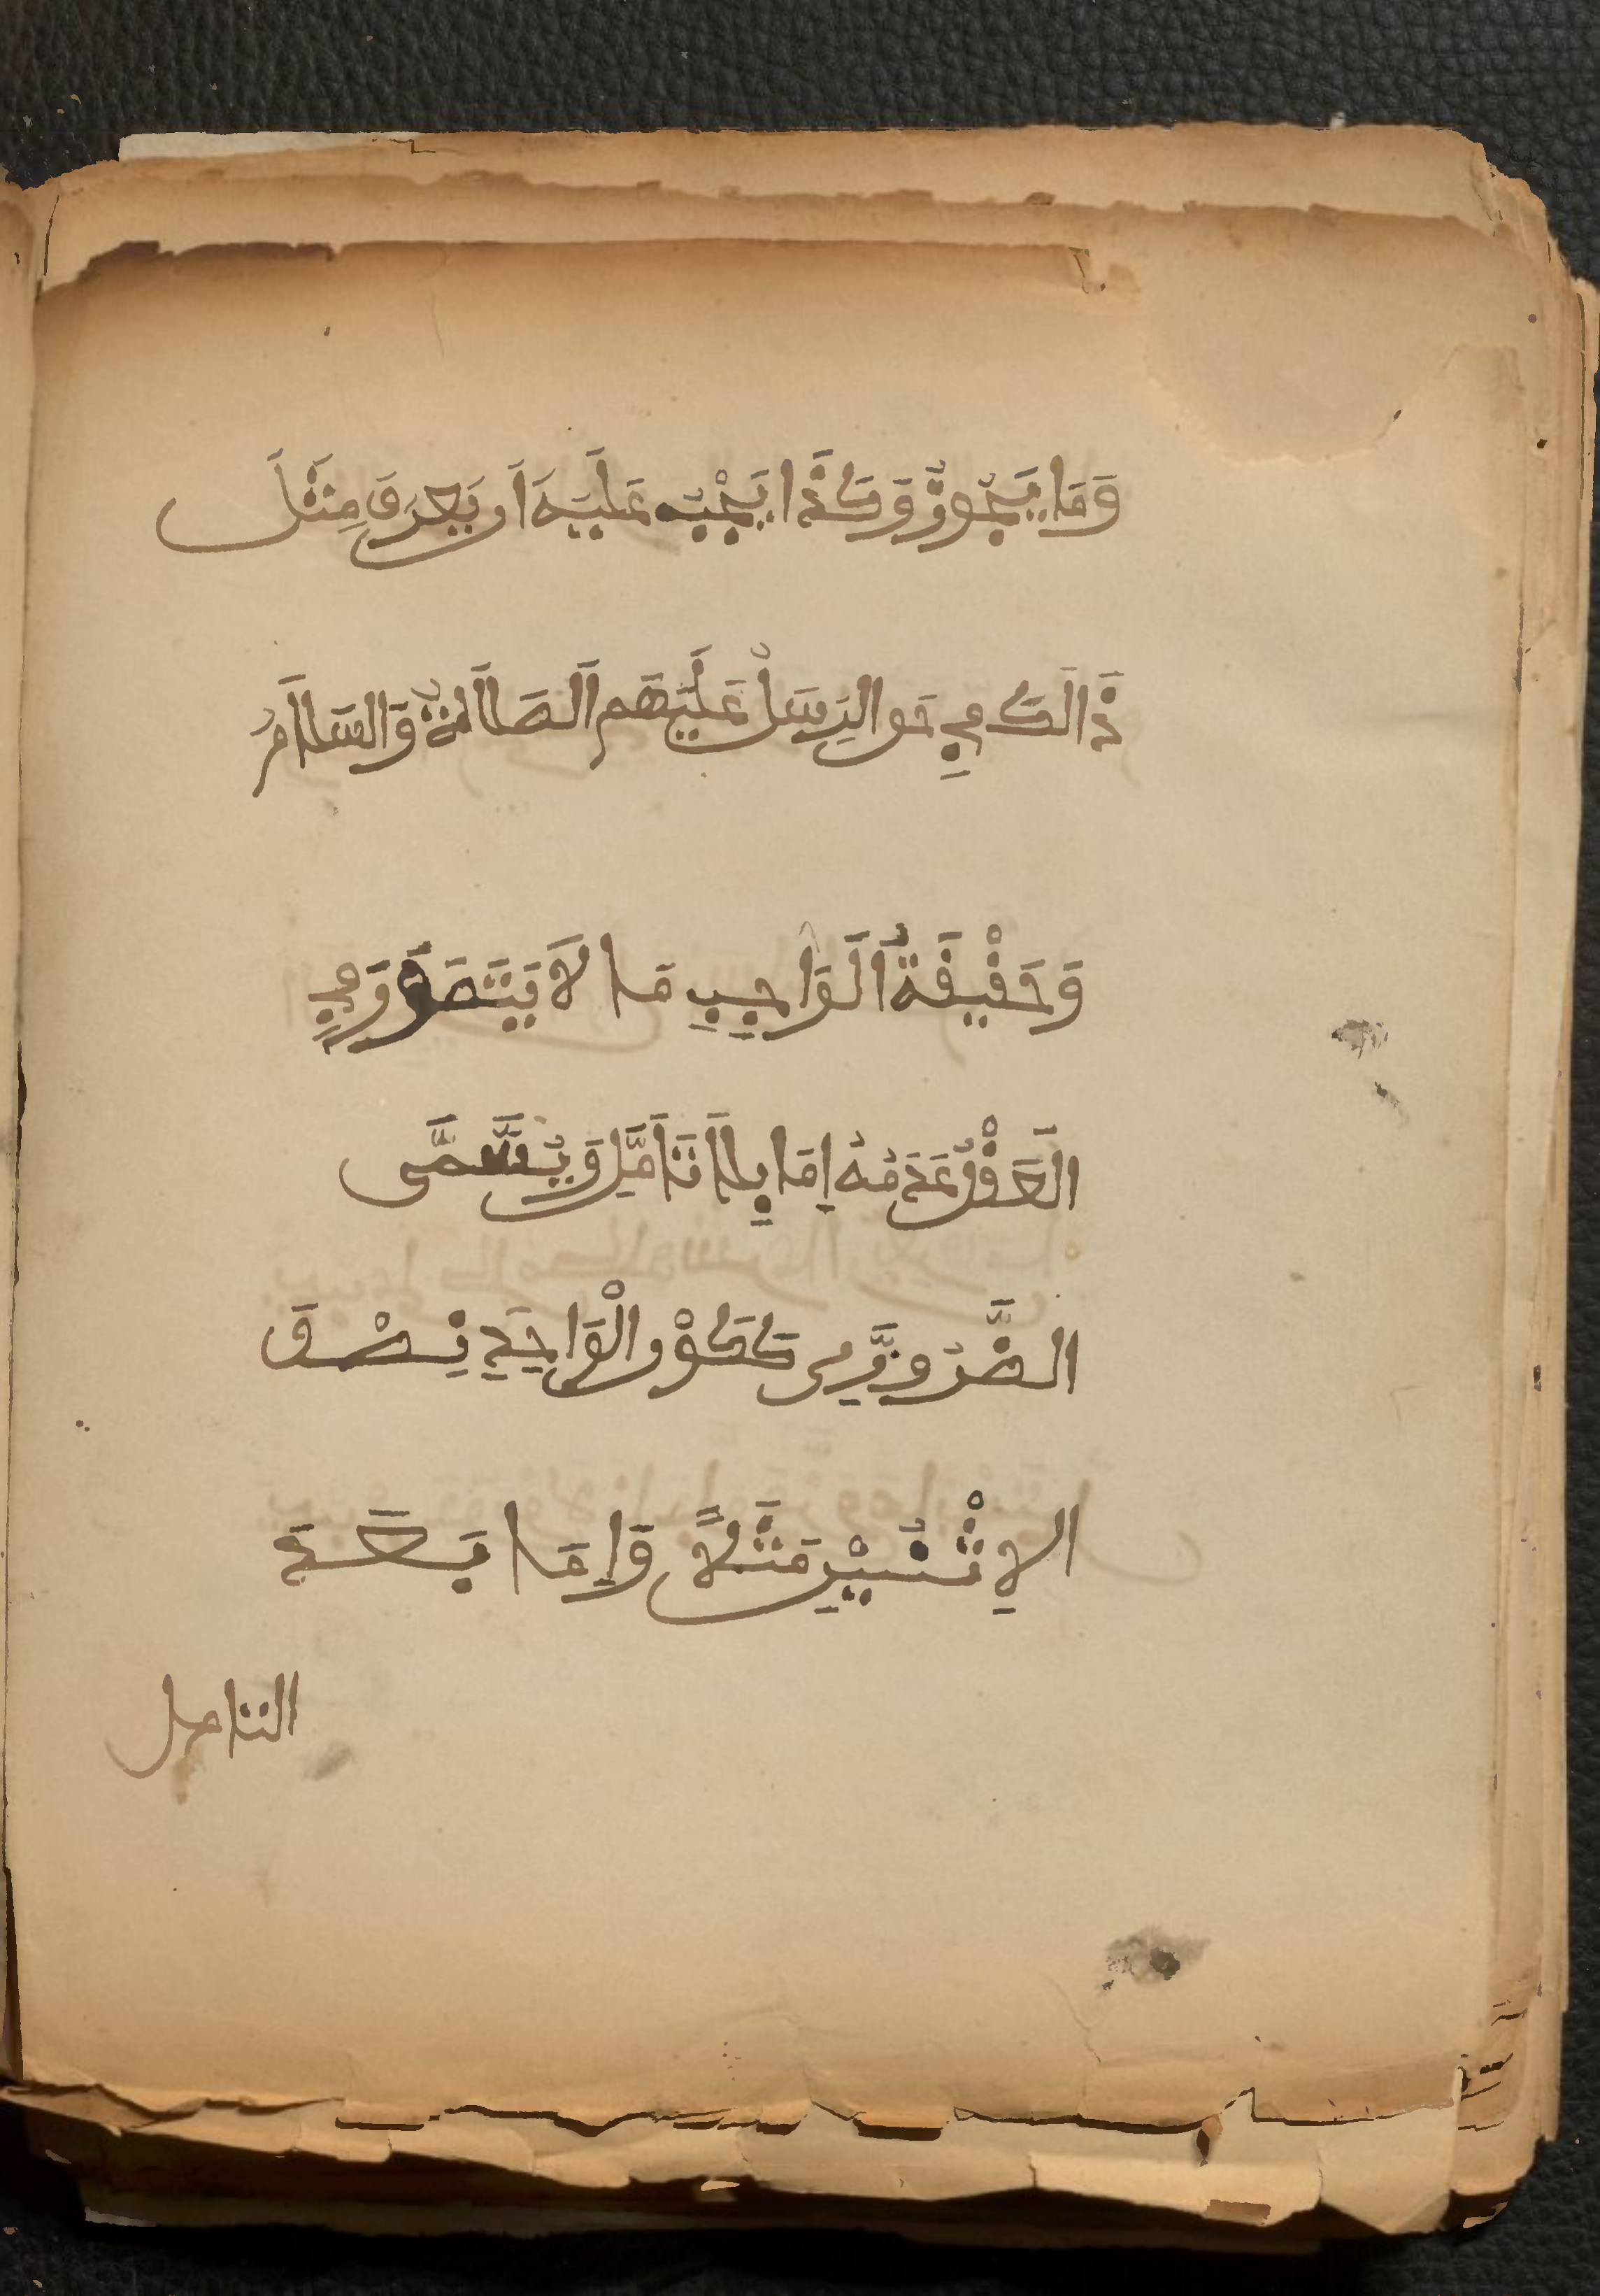 وَمَا يَجُوزُ وَكَذَا يَجِبُ عَلَيْهَ اَن يَعْرَفَ مِثْلَ
ذَالَكَ فِي حَق الرسَل عَلَيْهَم الصَلَاةُ وَالسَلَامُ
وَحَقْيقَةُ الَوَاجِبِ مَا لَا يَتَصَوَّرَ فِي
الَعَقْلُ عَدَمُهُ اِمَا بِلَا تَاَمَّلٍ وَيُسَّمَّى
الضَّرُورِّي كَكَوْن الْوَاحِدِ نِصْفَ
الاِثْنَيْنِ مَثَلاً وَاِمَا بَعَدَ
التامل